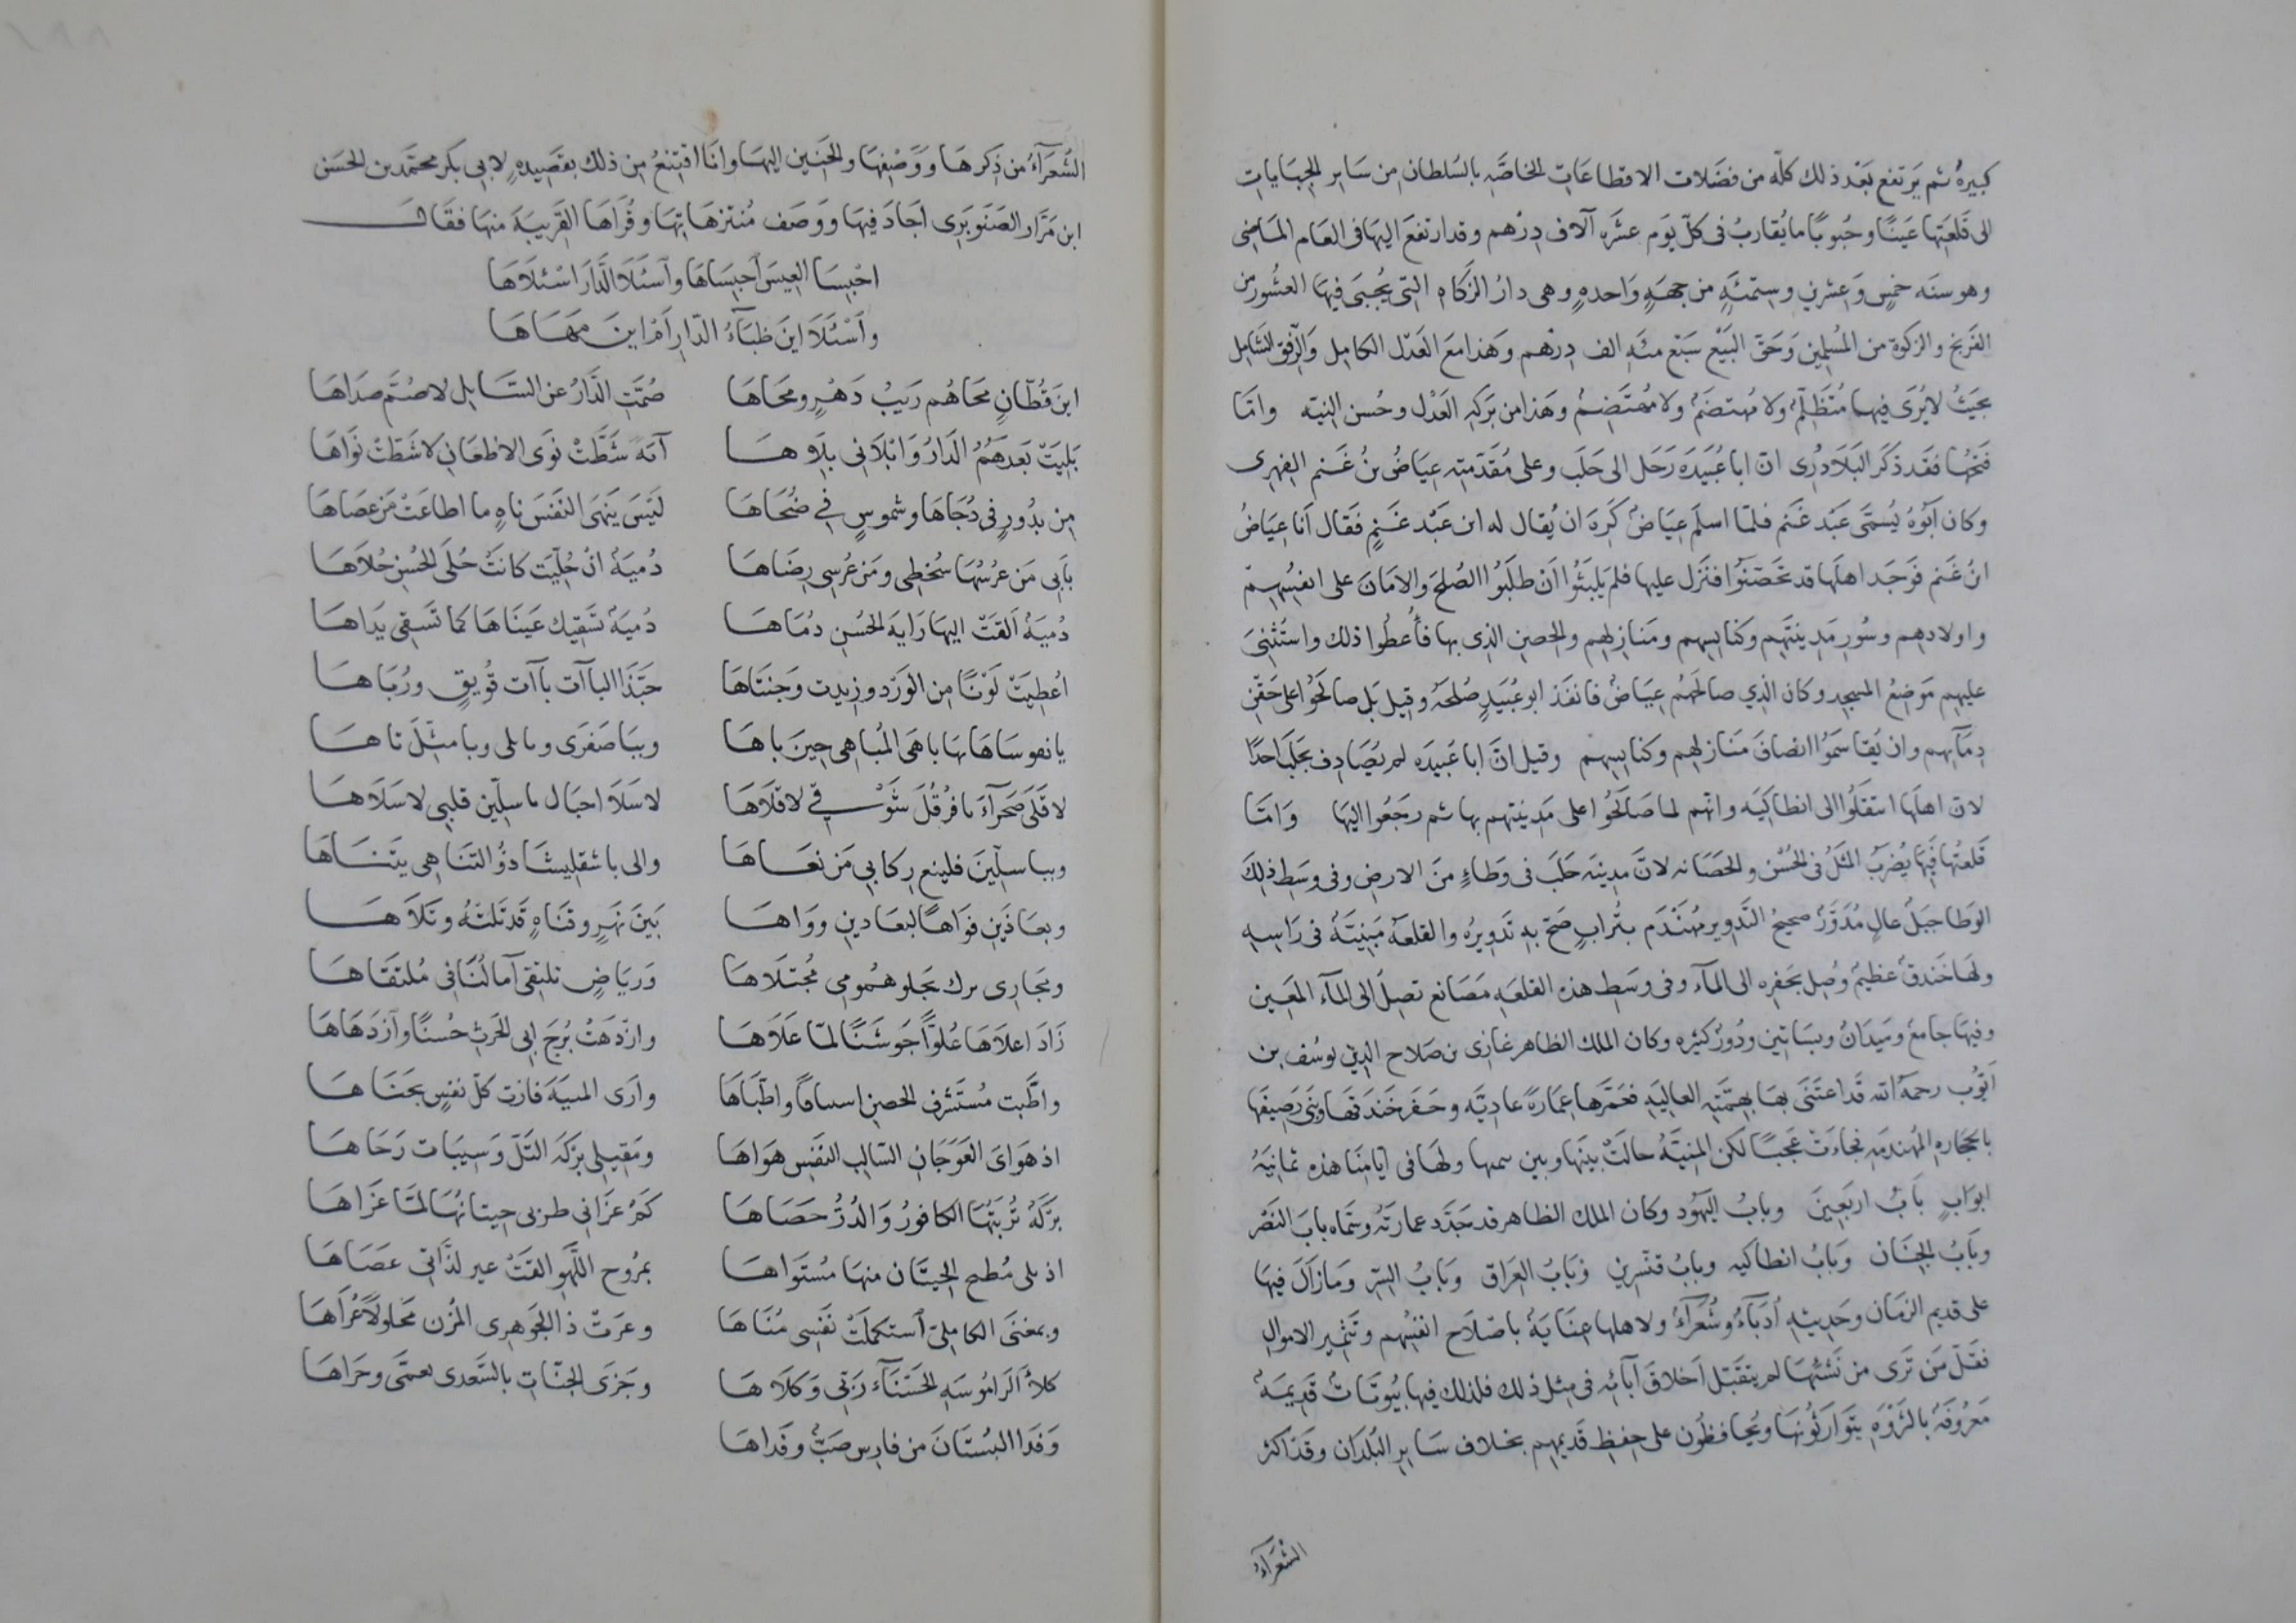 كبيرةٌ ثم يَرتفع بَعْد ذلك كلّه من فضَلات الاقطاعَاتِ الخاصَّةِ بالسُلطانِ مِن سَايرِ الجبَاياتِ
الى قلعَتِها عَينًا وحُبوبًا ما يُقاربُ فى كلّ يوَم عشَرَه آلاف دِرْهم وقد ارتفعَ اليهَا فى العَام المَاضِى
وهو سنَه خمسٍ وَعِشرين وستمئَةٍ من جهَةٍ وَاحدهٍ وهى دارُ الزَكاهِ التى يُجبىَ فيهَا العشُور من
الفَرِنج والزكوة من المُسلمِين وَحَقّ البَيْع سَبْع مئَهِ الف دِرْهم وَهَذا معَ العَدْل الكامِل وَالرِّفق الشَامِل
بحَيثُ لا يُرَى فيهَا مُتَظلِّمٌ ولا مُهتضَمٌ ولا مُهتَضِمٌ وهَذا من بَركهِ العَدْل وحُسن النيّه وامّا
فتحُها فقَد ذكَر البَلَاذُرِى انّ ابا عُبَيدَه رَحَل الى حَلَب وعلى مُقدّمتِه عِيَاضُ بنُ غَنم الفِهرِى
وكان اَبوُهُ يُسمَّى عَبْد غَنم فلمّا اسلَم عِيَاضٌ كَرِهَ ان يُقال له ابن عَبْد غَنمٍ فقَال اَنا عِيَاضُ
ابنُ غَنم فوَجَد اهلَها قد تحَصّنوُا فنَزل عليها فلم يَلبثُوا اَن طلَبُوا الصُلحَ والامَانَ على انفسُهِم
واولادهِم وسُورِ مَدِينَتهِم وكنايسِهم ومَنازِلهِم والحِصنِ الذِى بها فأُعطُوا ذلك واستُثنِىَ
عليهِم مَوضِعُ المسجِد وكان الّذِي صالحَهُم عِيَاضٌ فانفَذ ابو عُبَيدٍ صُلحَهُ وقيل بَل صالحَوُا على حَقْن
دِمَآئِهم وان يُقاسَمُوا انصافَ مَنازِلهِم وكنايسِهم وقيل انَّ ابا عُبَيدَه لم يُصَادِف بحَلَب احدًا
لانّ اهلَها انتقَلُوا الى انطاكيَه وانّهم لما صَالَحُوا على مَدِينتهِم بها ثم رجَعُوا اليهَا وَامّا
قلعتُها فبِهَا يُضرَبُ المثَلُ فى الحُسْن والحَصَانه لانَّ مدِينَه حَلَبَ فى وَطاءٍ منَ الارضِ وفى وسَطِ ذلِكَ
الوَطا جبَلٌ عالٍ مُدَوَّرٌ صحِيحُ التَّدوِير مُهَنْدَم بتُرابٍ صَحّ بهِ تَدوِيرُه والقلعَهُ مَبنيَّهٌ فى رَاسِه
ولهَا خَندَقٌ عظيمٌ وصِل بحَفرِه الى المَآء وفى وسَطِ هذه القلعَهِ مَصَانع تصِلُ الى المَآء المَعِين
وفيهَا جامعٌ ومَيدَانٌ وبسَاتين ودُورٌ كثيره وكان الملك الظاهر غازِى بن صَلاح الدين يوسُف بن
ايّوُب رحمَهُ الله قَد اعتَنىَ بهَا بهمَّتِه العاليَهِ فعمَّرها عِمَارَةً عادِيَّه وحَفَر خَندَقهَا وبنىَ رَصِيفهَا
بالحجَارهِ المُهَندَمَهِ فجاءَت عَجَبًا لكن المنِيَّهُ حالَتْ بينَها وبين سمها ولهَا فى ايّامِنَا هذه ثمانيَهُ
ابوَابٍ بَابُ اربَعِينَ وبابُ اليَهوُد وكان الملك الظاهر قد جَدَّد عمارتَهُ وسَمّاه بابَ النَصْر
وبَابُ الجِنَان وبَابُ انطاكيه وبابُ قنّسرِين وبَابُ العِرَاق وبَابُ السِرّ وَمَازالَ فيهَا
على قديم الزمَان وحَدِيثِهِ اُدَبآءُ وشُعَرَآءُ ولاهلها عِنَايَهٌ باصْلَاح انفسُهِم وتَثمِير الاموالِ
فقَلّ مَن تَرَى من نَشئِهَا لم يتقبَّل اَخلاقَ آبائِه فى مِثل ذلك فلذلك فيها بيُوتَاتٌ قدِيمَهٌ
مَعروُفَهٌ بالثَروَهِ يتَوَارثُونهَا ويُحافظُون على حِفظِ قَديمِهِم بخلاف سَايرِ البُلدَان وقَد اكثر
الشُعَرآءُ
الشُعَرآءُ من ذِكرِهَا ووَصْفِهَا والحَنِين اليهَا وانَا اقتنِعُ مِن ذلك بقَصِيدهٍ لابى بَكر محمّد بن الحسَن
ابن مَرَّار الصَنَوبَرِى اَجَادَ فيهَا ووَصَف مُنتزهَاتِها وقُرَاهَا القَرِيبَةَ منهَا فقَال
احْبِسَا العِيسَ احبِسَاهَا وآسئَلَا الدَّارَ اسْئلَاهَا
وآسْئَلَا اينَ ظبَآءُ الدّارِ اَم اينَ مهَاهَا
اينَ قُطّانٍ محَاهُم رَيبُ دَهْرٍ ومحَاهَا صُمَّتِ الدَّارُ عن السَّايِلِ لا صُمَّ صدَاهَا
بَلِيَتْ بَعدَهُمُ الدَارُ وَابْلَانى بِلَاهَا آيَهً شَطَّتْ نوَى الاظعَانِ لا شَطّتْ نوَاهَا
مِن بدُورٍ فى دُجَاهَا وشموسٍ فى ضُحَاهَا لَيسَ يَنهَى النَفسَ ناهٍ ما اطاعَتْ مَن عصَاهَا
بأبِى مَن عرْسُهَا سُخطِى ومَن عُرسِى رِضَاهَا دُميَهٌ انْ جُلّيَت كانتْ حُلَى الحُسنِ حُلَاهَا
دُميَهٌ اَلقَتْ اليهَا رَايَهَ الحُسنِ دُمَاهَا دُميَهٌ تَسْقِيك عَينَاهَا كما تَسَقى يَدَاهَا
اُعطِيَتْ لَوْنًا مِن الوَرْد وزِيدت وَجنَتَاهَا حبَّذَا الباآت باآت قُوَيقٍ ورُبَاهَا
يا نفوسَاهَا بها باهَى المُباهى حِينَ باهَا وببَاصَفرَى وبابلى وبا مِثلَ تاهَا
لا قَلَى صَحرَآءَ بافرُقُلَ شَوْقى لا قلَاهَا لا سَلَا اجبَال باسلّين قلبِى لا سَلَاهَا
وبباسلّينَ فليَبغ رِكابِى مَن بَغَاهَا والى باشقلِيشَا ذُو التنَاهى يتَنَاهَا
وبعَاذَين فوَاهًا لبعَادين ووَاهَا بَينَ نهَرٍ وقنَاهٍ قَد تَلتهُ وتَلَاهَا
ومَجارِى برك يجلو هُمومِى مُجتلَاهَا وَرِيَاضٍ تلتقِى آمالُنَا فى مُلتقَاهَا
زَادَ اعلَاهَا عُلوًّا جَوشَنًا لمّا عَلَاهَا وازْدهَتْ بُرجَ ابى الحَرثِ حُسنًا وآزدَهَاهَا
واطّبت مُستَشرَف الحصنِ واطّبَاهَا وارَى المنيَهَ فازت كلّ نفسٍ بجَنَاهَا
اذ هوَاىَ العَوجَانِ السّالب النفَسِ هوَاهَا ومَقِيلِى بِركَهَ التَلّ وَسَيبَات رَحَاهَا
بَرَكهٌ تُربَتُهَا الكافورُ وَالدُرُّ حَصَاهَا كَم غزَانى طربى حِيتانُهَا لمّا غزَاهَا
اذ بلى مُطبح الحِيتَان منهَا مُستَوَاهَا بمُروُج اللَّهو القَتْ عير لذّاتى عصَاهَا
وبمغنىَ الكامِلىّ آستكملَتْ نفَسِى مُنَاهَا وغرَتْ ذا الجَوهَرِى المُزن مَحلولًا غرَاهَا
كلأَ الرَامُوسَهِ الحَسنَآءَ رَبّى وَكلَاهَا وجَزَى الجنّاتِ بالسَّعدى بعمَّى وجَزاهَا
وَفدَا البُستَانَ من فارِس صَبٌّ وفَداهَا